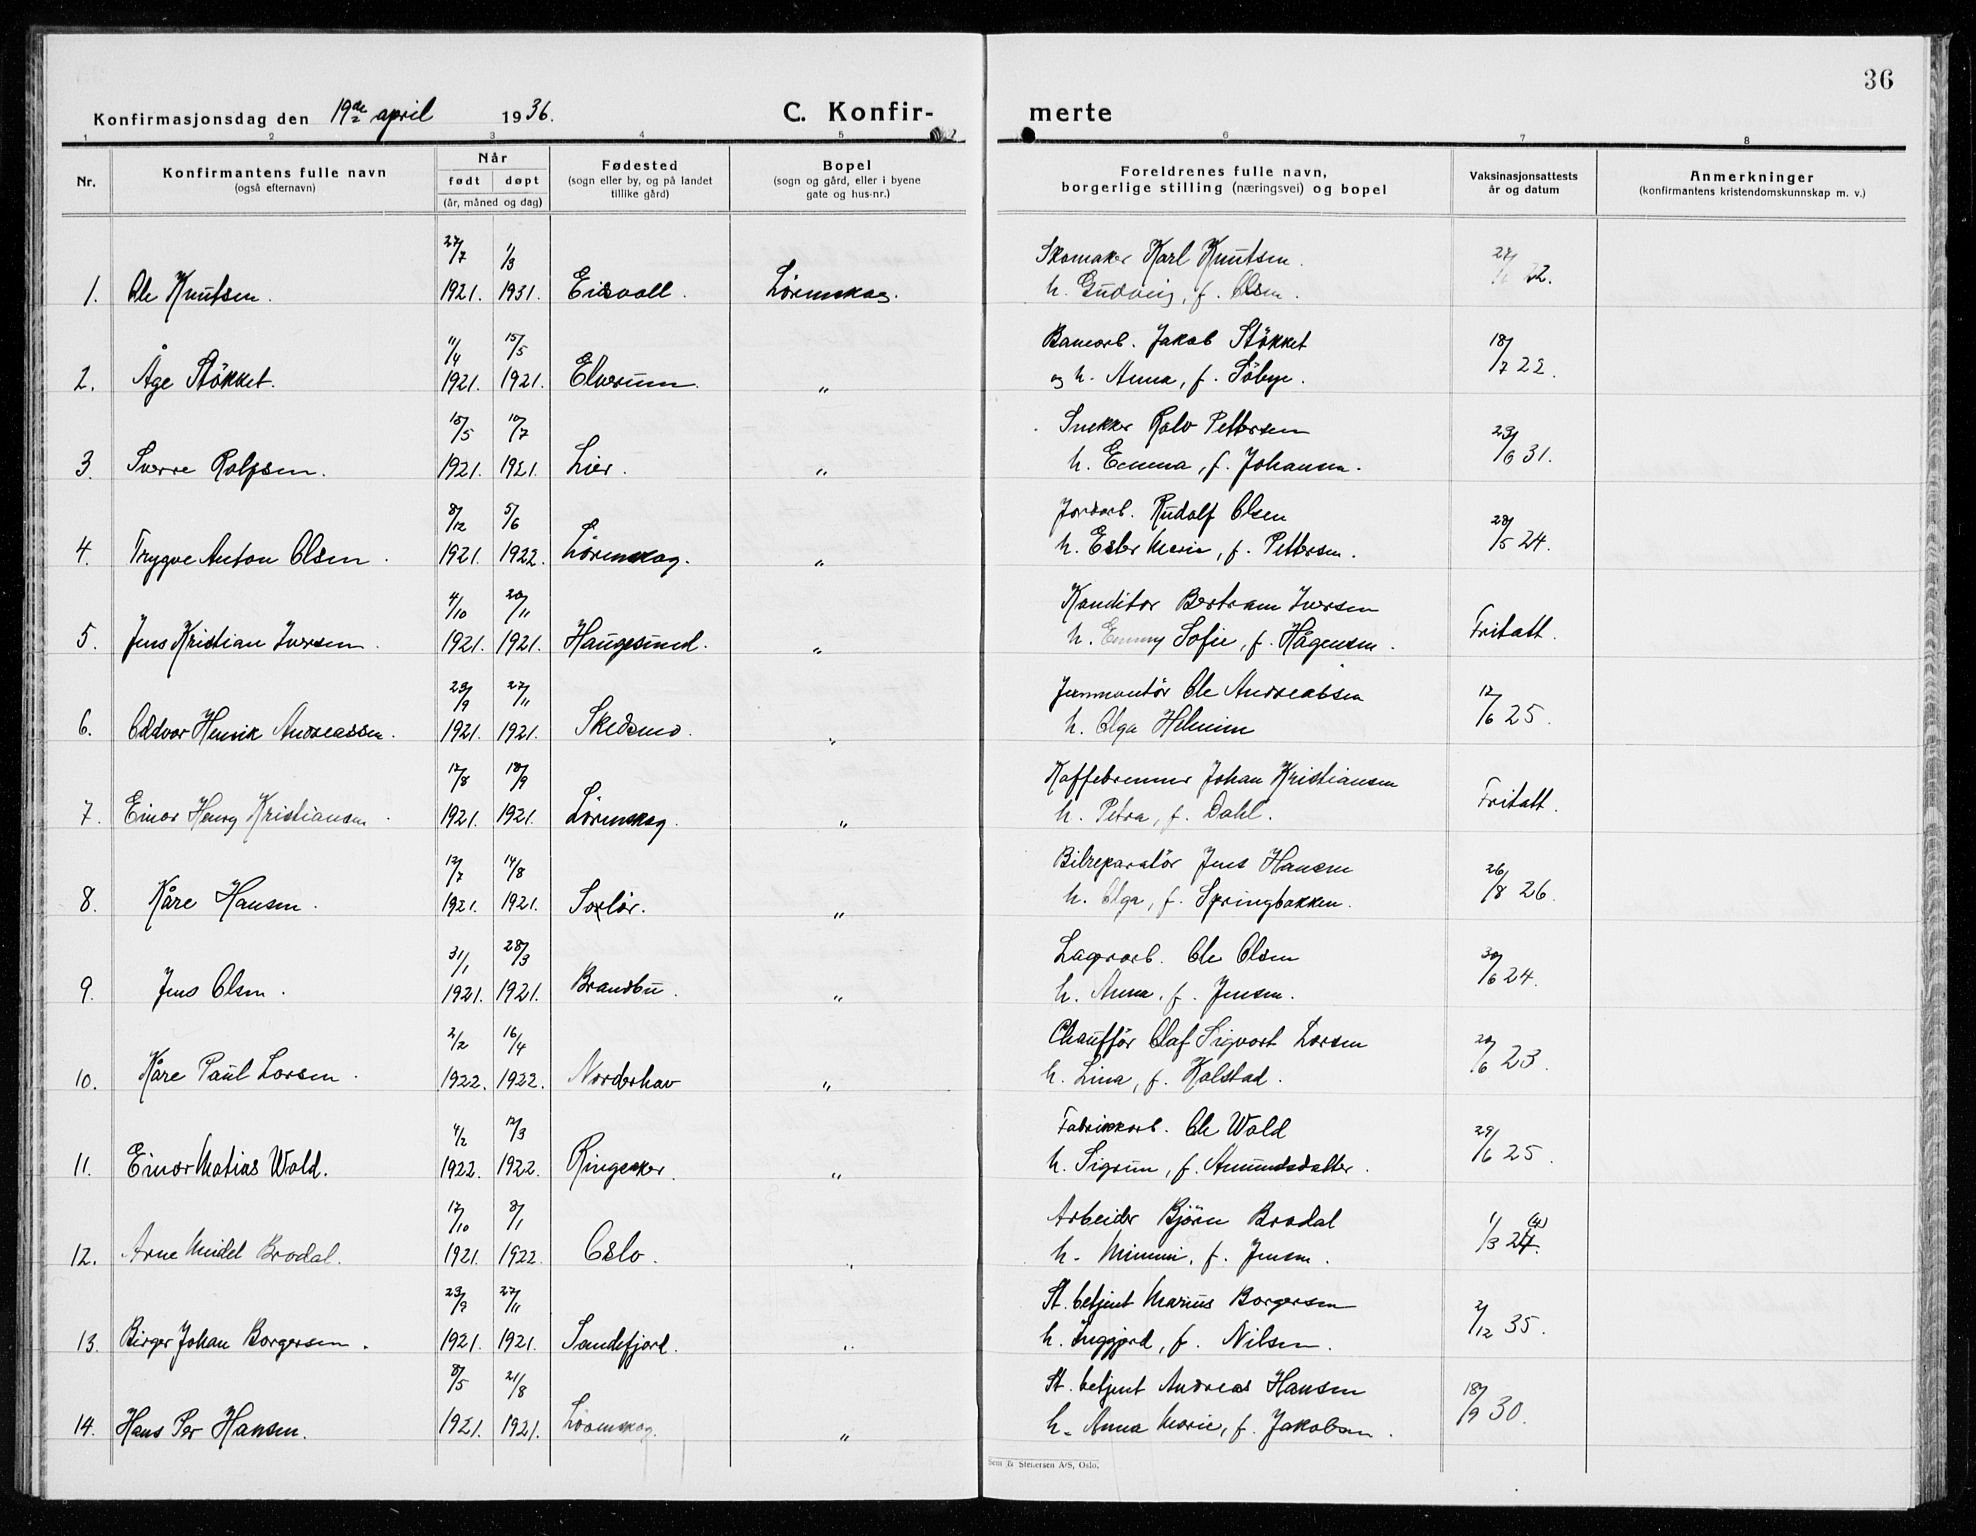 36
Konfirmasjonsdag den 19de april 1936. C. Konfir- merte
1 2 3 4 5 6 7 8
Nr.
Konfirmantens fulle navn
(også efternavn)
Når
født døpt
(år, måned og dag)
Fødested
(sogn eller by, og på landet
tillike gård)
Bopel
(sogn og gård, eller i byene
gate og hus-nr.)
Foreldrenes fulle navn,
borgerlige stilling (næringsvei) og bopel
Vaksinasjonsattests
år og datum
Anmerkninger
(konfirmantens kristendomskunnskap m. v.)
27/7 1/3 Skomaker Karl Knutsen.
1. Ole Knutsen. 1921. 1931. Eidsvoll. Lørenskog. h. Gudveig, f. Olsen. 22.
11/4 15/5 Banearb. Jakob Stökket 18/7 22.
2. Åge Stökket. 1921. 1921. Elverum. „ og h. Anna, f. Söbye.
15/5 10/7 Snekker Rolv Pettersen 23/6 31.
3. Sverre Rolfsen. 1921. 1921. Lier. „ h. Emma, f. Johansen.
8/12 5/6 Jordarb. Rudolf Olsen 28/5 24.
4. Trygve Anton Olsen. 1921. 1922. Lørenskog. „ h. Ester Marie, f. Pettersen.
4/10 20/11 Konditor Bertram Iversen Fritatt.
5. Jens Kristian Iversen. 1921. 1921. Haugesund. „ h. Emmy Sofie, f. Hågensen.
23/9 27/11 Jernmontör Ole Andreassen 17/6 25.
6. Oddvar Henrik Andreassen. 1921. 1921. Skedsmo. „ h. Olga Helmine
17/8 18/9 Kaffebrenner Johan Kristiansen Fritatt.
7. Einar Henry Kristiansen. 1921. 1921. Lörenskog. „ h. Petra, f. Dahl.
17/7 14/8 Bilreparatör Jens Hansen 26/8 26.
8. Kåre Hansen. 1921. 1921. Solör. „ h. Olga, f. Springbakken.
31/1 28/3 Lagerarb. Ole Olsen 30/6 24.
9. Jens Olsen. 1921. 1921. Brandbu. „ h. Anna, f. Jensen.
2/2 16/4 Chaufför Olaf Sigvart Larsen 20/6 23.
10. Kåre Paul Larsen. 1922. 1922. Norderhov „ h. Lina, f. Kolstad.
4/2 12/3 Fabrikkarb. Ole Wold 29/6 25.
11. Einar Matias Wold. 1922. 1922. Ringsaker. „ h. Sigrun, f. Amundsdatter.
17/10 8/1 Arbeider Bjørn Brodal 1/3 24. (4)
12. Arne Meidel Brodal. 1921. 1922. Oslo. „ h. Mimmi, f. Jensen.
23/9 27/11 St. betjent Marius Borgersen 2/12 35.
13. Birger Johan Borgersen. 1921. 1921. Sandefjord. „ h. Inggjerd, f. Nilsen.
8/5 21/8 St. betjent Andreas Hansen 18/9 30.
14. Hans Per Hansen. 1921. 1921. Lörenskog. „ h. Anna Marie, f. Jakobsen.
Sem & Stenersen A/S, Oslo.